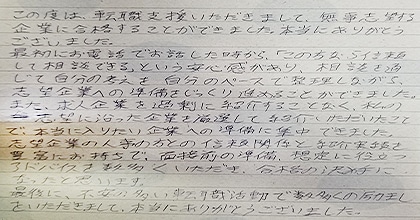 この度は、転職支援いただきまして、無事志望する
企業に合格することができました。本当にありがとう
ございました。
最初にお電話でお話した時から、「この方なら信頼
して相談できる」という安心感があり、相談を通
じて自分の考えを自分のペースで整理しながら、
志望企業への準備をじっくり進めることができました。
また、求人企業を過剰に紹介することなく、私の
志望に沿った企業を厳選して紹介いただいたこと
で、本当に入りたい企業への準備に集中できました。
志望企業の人事の方との信頼関係と紹介実績を
豊富にお持ちで、面接前の準備、想定に役立つ
アドバイスを数多くいただき、合格の決め手に
なったと思います。
最後に、不安の多い転職活動で数多くの励まし
をいただきまして、本当にありがとうございました。